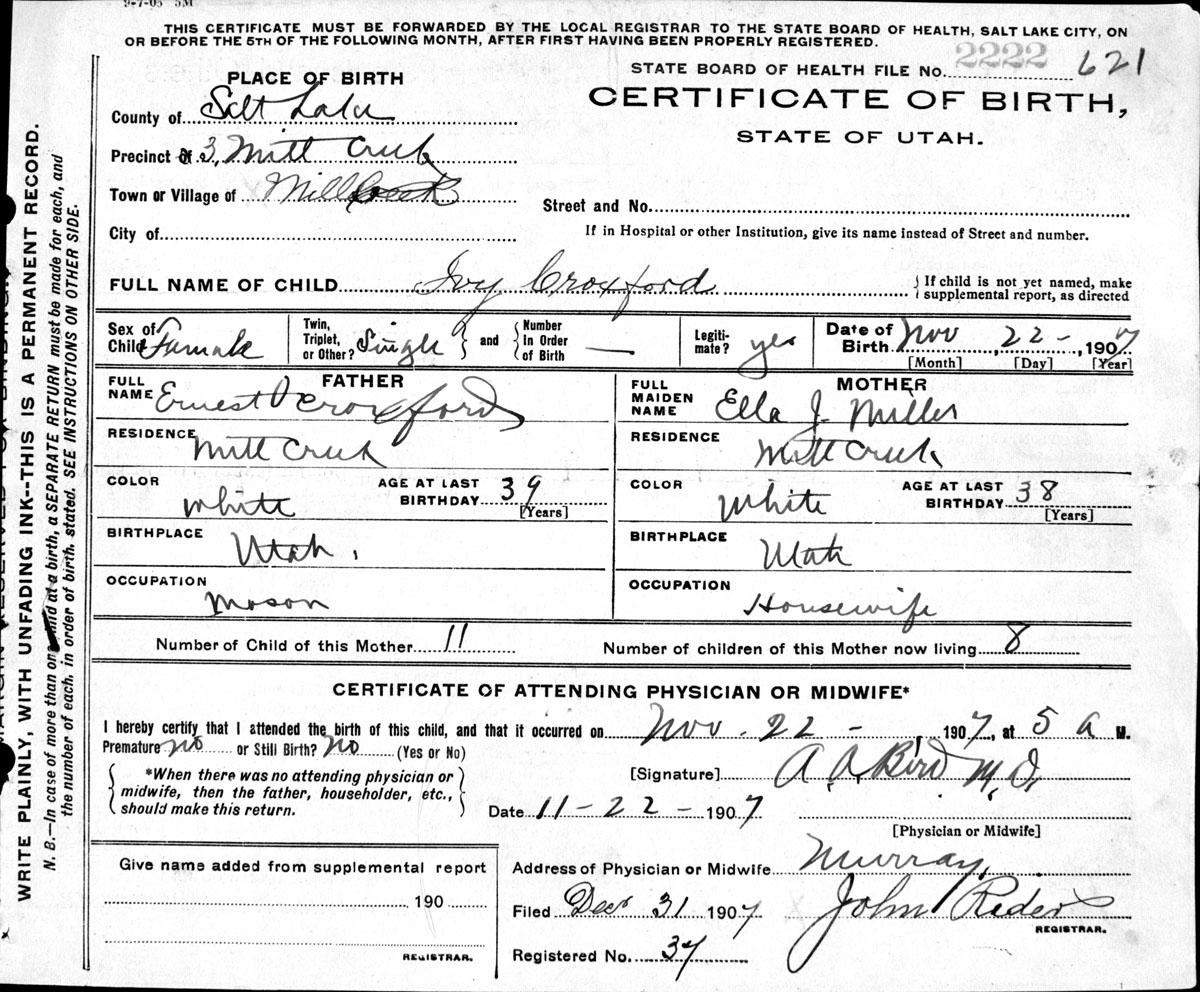 9-7-05 5M
THIS CERTIFICATE MUST BE FORWARDED BY THE LOCAL REGISTRAR TO THE STATE BOARD OF HEALTH, SALT LAKE CITY, ON
OR BEFORE THE 5TH OF THE FOLLOWING MONTH, AFTER FIRST HAVING BEEN PROPERLY REGISTERED.
STATE BOARD OF HEALTH FILE No. 2222 621
CERTIFICATE OF BIRTH,
STATE OF UTAH.
PLACE OF BIRTH
County of Salt Lake
Precinct of 3, Mill Creek
Town or Village of Mill Creek
Street and No.
City of
If in Hospital or other Institution, give its name instead of Street and number.
FULL NAME OF CHILD Ivy Croxford
If child is not yet named, make
supplemental report, as directed
Sex of Child Female
Twin, Triplet, or Other? Single
and Number In Order of Birth —
Legiti-mate? yes
Date of Birth Nov 22 - , 1907
[Month] [Day] [Year]
FATHER
FULL NAME Ernest Croxford
RESIDENCE Mill Creek
COLOR White
AGE AT LAST BIRTHDAY 39
[Years]
BIRTHPLACE Utah.
OCCUPATION Mason
MOTHER
FULL MAIDEN NAME Ella J. Miller
RESIDENCE Mill Creek
COLOR White
AGE AT LAST BIRTHDAY 38
[Years]
BIRTHPLACE Utah
OCCUPATION Housewife
Number of Child of this Mother 11
Number of children of this Mother now living 8
CERTIFICATE OF ATTENDING PHYSICIAN OR MIDWIFE*
I hereby certify that I attended the birth of this child, and that it occurred on Nov. 22 - , 1907, at 5 a M.
Premature no or Still Birth? no (Yes or No)
*When there was no attending physician or
midwife, then the father, householder, etc.,
should make this return.
[Signature] A. A. Bird M.D.
Date 11-22-1907
[Physician or Midwife]
Give name added from supplemental report
190
REGISTRAR.
Address of Physician or Midwife Murray,
Filed Dec 31 1907 John Rider
REGISTRAR.
Registered No. 37
WRITE PLAINLY, WITH UNFADING INK--THIS IS A PERMANENT RECORD.
N. B.—In case of more than one child at a birth, a SEPARATE RETURN must be made for each, and
the number of each, in order of birth, stated. SEE INSTRUCTIONS ON OTHER SIDE.